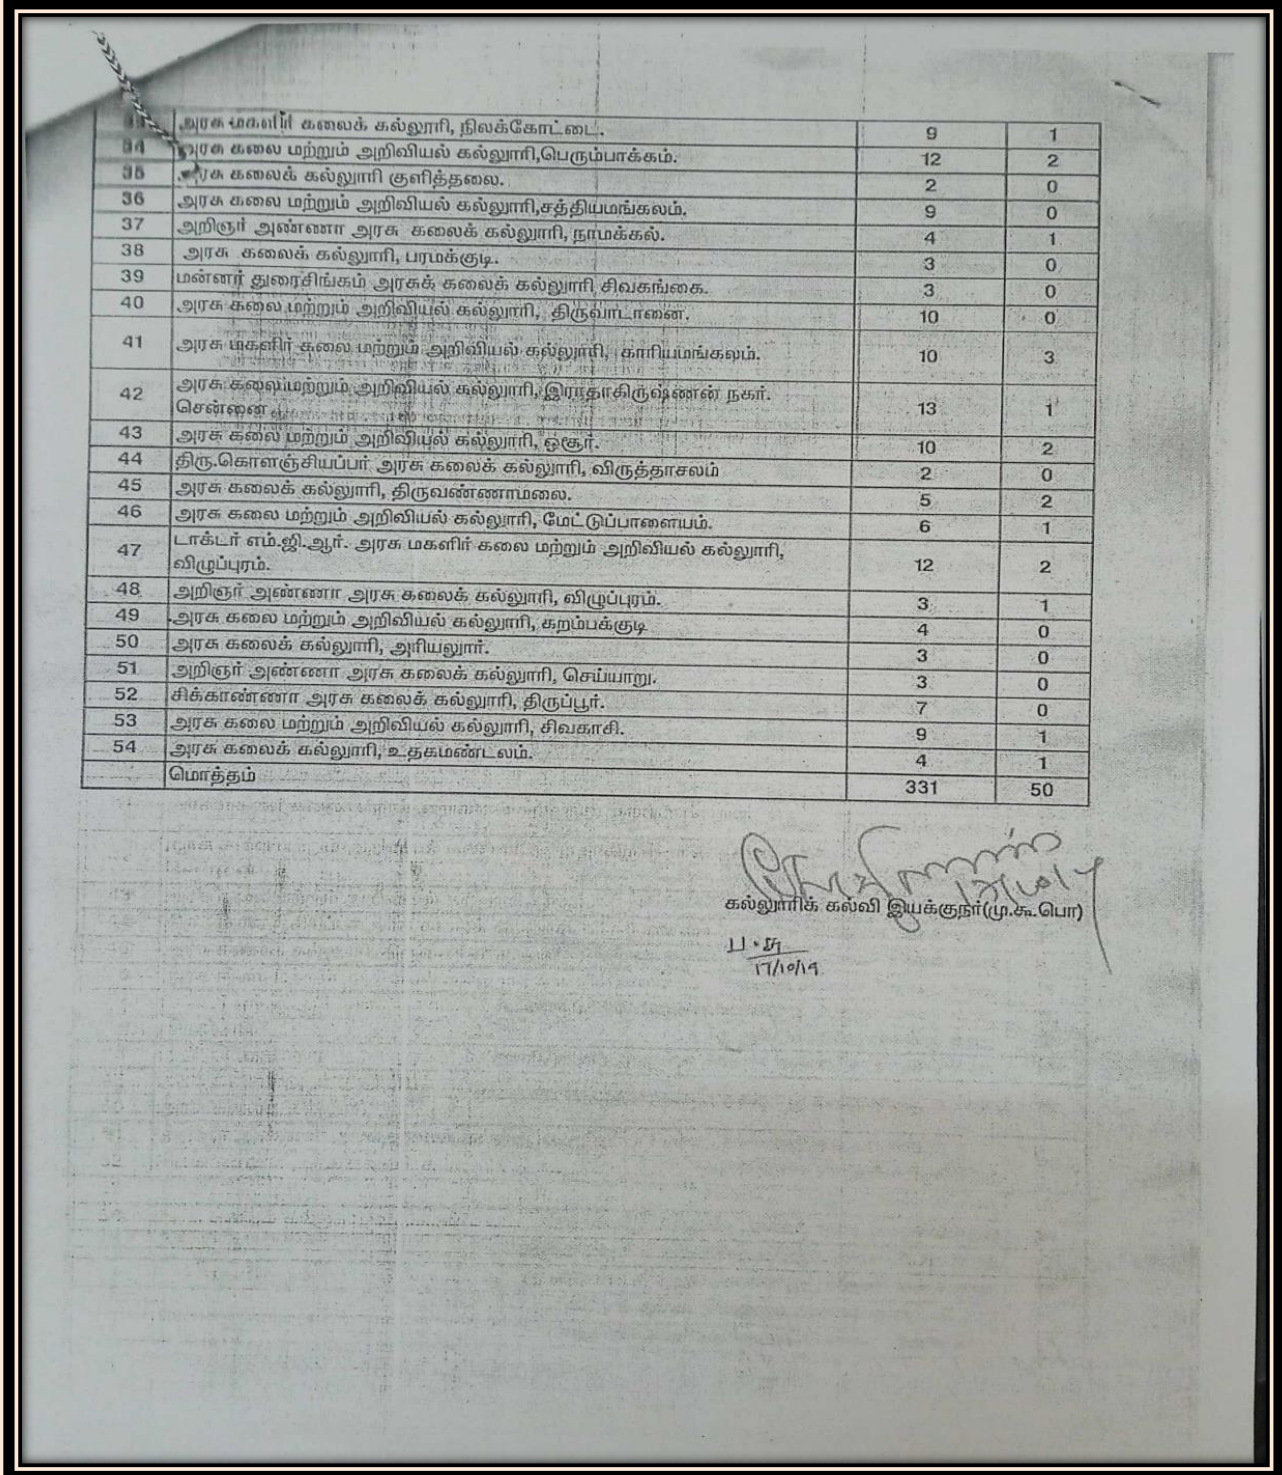 33 அரசு மகளிர் கலைக் கல்லூரி, நிலக்கோட்டை. 9 1
34 அரசு கலை மற்றும் அறிவியல் கல்லூரி,பெரும்பாக்கம். 12 2
35 அரசு கலைக் கல்லூரி குளித்தலை. 2 0
36 அரசு கலை மற்றும் அறிவியல் கல்லூரி,சத்தியமங்கலம். 9 0
37 அறிஞர் அண்ணா அரசு கலைக் கல்லூரி, நாமக்கல். 4 1
38 அரசு கலைக் கல்லூரி, பரமக்குடி. 3 0
39 மன்னர் துரைசிங்கம் அரசுக் கலைக் கல்லூரி, சிவகங்கை. 3 0
40 அரசு கலை மற்றும் அறிவியல் கல்லூரி, திருவாடானை. 10 0
41 அரசு மகளிர் கலை மற்றும் அறிவியல் கல்லூரி, காரியமங்கலம். 10 3
42 அரசு கலை மற்றும் அறிவியல் கல்லூரி, இராதாகிருஷ்ணன் நகர். 13 1
சென்னை
43 அரசு கலை மற்றும் அறிவியல் கல்லூரி, ஒசூர். 10 2
44 திரு.கொளஞ்சியப்பர் அரசு கலைக் கல்லூரி, விருத்தாசலம் 2 0
45 அரசு கலைக் கல்லூரி, திருவண்ணாமலை. 5 2
46 அரசு கலை மற்றும் அறிவியல் கல்லூரி, மேட்டுப்பாளையம். 6 1
47 டாக்டர் எம்.ஜி.ஆர். அரசு மகளிர் கலை மற்றும் அறிவியல் கல்லூரி, 12 2
விழுப்புரம்.
48 அறிஞர் அண்ணா அரசு கலைக் கல்லூரி, விழுப்புரம். 3 1
49 அரசு கலை மற்றும் அறிவியல் கல்லூரி, கறம்பக்குடி 4 0
50 அரசு கலைக் கல்லூரி, அரியலூர். 3 0
51 அறிஞர் அண்ணா அரசு கலைக் கல்லூரி, செய்யாறு. 3 0
52 சிக்காண்ணா அரசு கலைக் கல்லூரி, திருப்பூர். 7 0
53 அரசு கலை மற்றும் அறிவியல் கல்லூரி, சிவகாசி. 9 1
54 அரசு கலைக் கல்லூரி, உதகமண்டலம். 4 1
மொத்தம் 331 50
கல்லூரிக் கல்வி இயக்குநர்(மு.கூ.பொ)
17/10/19